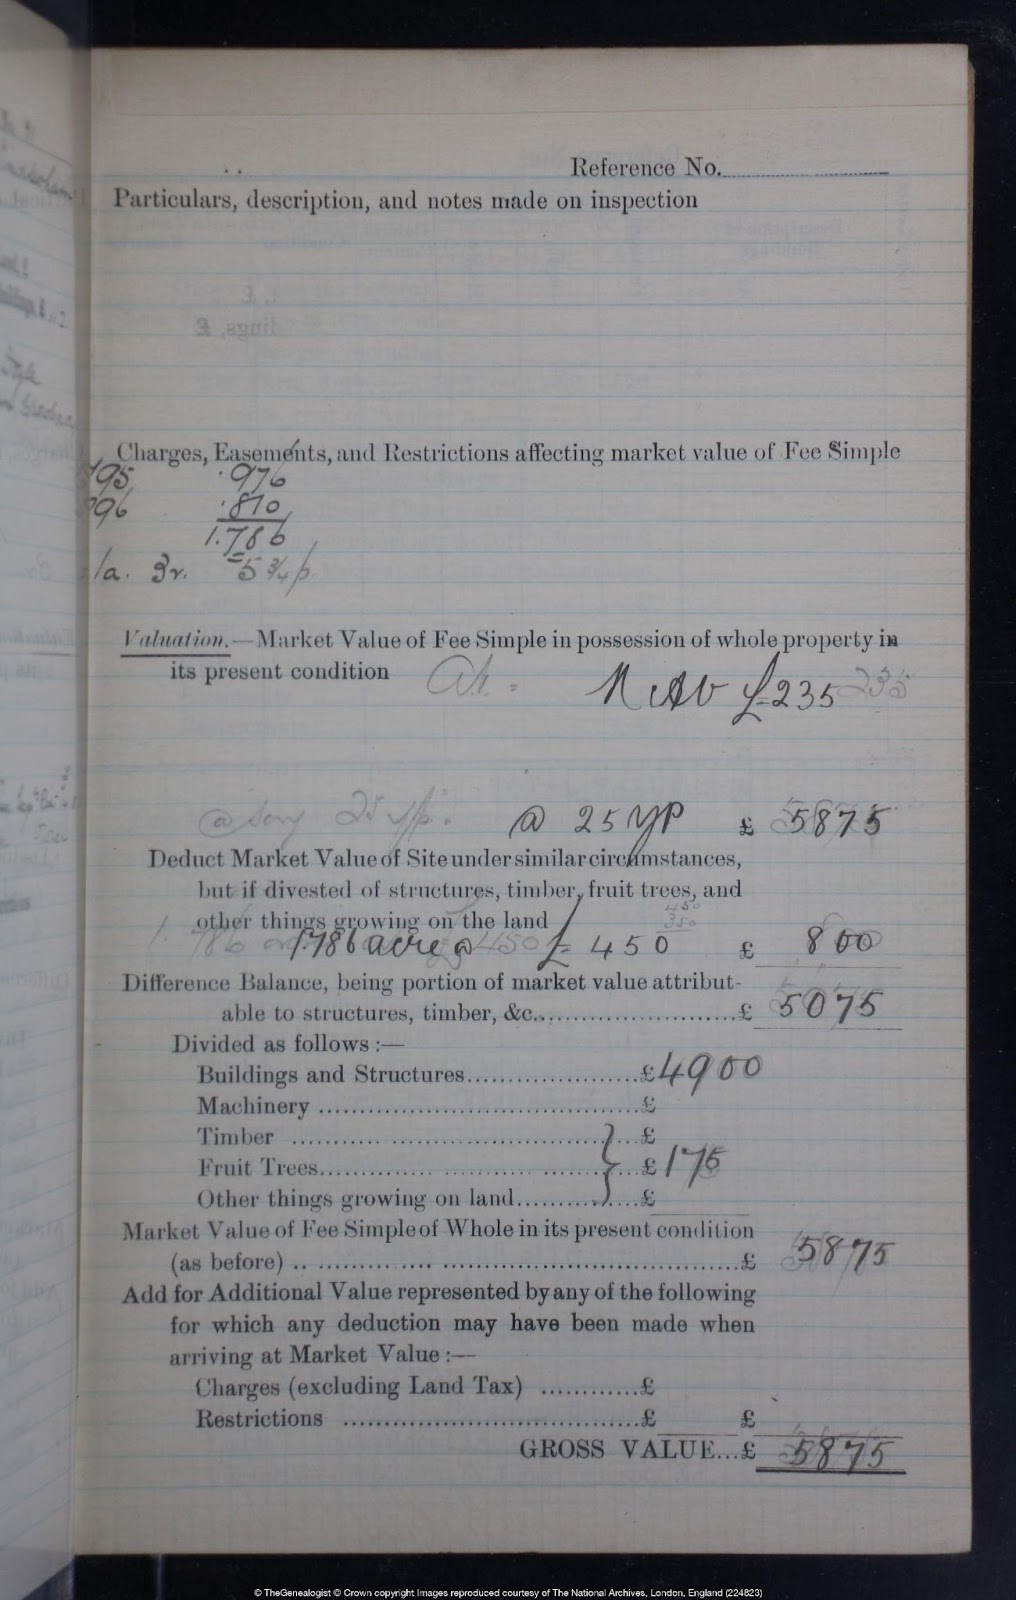 Reference No.
Particulars, description, and notes made on inspection
Charges, Easements, and Restrictions affecting market value of Fee Simple
95 .976
96 .810
1.786
1a. 3r. 5¾p.
Valuation.—Market Value of Fee Simple in possession of whole property in
its present condition
£235 235
@ say 25 yp. @ 25 YP £ 5875
Deduct Market Value of Site under similar circumstances,
but if divested of structures, timber, fruit trees, and
other things growing on the land
450
350
1.786 acre @ 450 £450 £ 800
Difference Balance, being portion of market value attribut-
able to structures, timber, &c. £ 5075
Divided as follows :—
Buildings and Structures £4900
Machinery £
Timber £
Fruit Trees £175
Other things growing on land £
Market Value of Fee Simple of Whole in its present condition
(as before) £ 5875
Add for Additional Value represented by any of the following
for which any deduction may have been made when
arriving at Market Value :—
Charges (excluding Land Tax) £
Restrictions £ £
GROSS VALUE...£ 5875
© TheGenealogist © Crown copyright Images reproduced courtesy of The National Archives, London, England (224823)